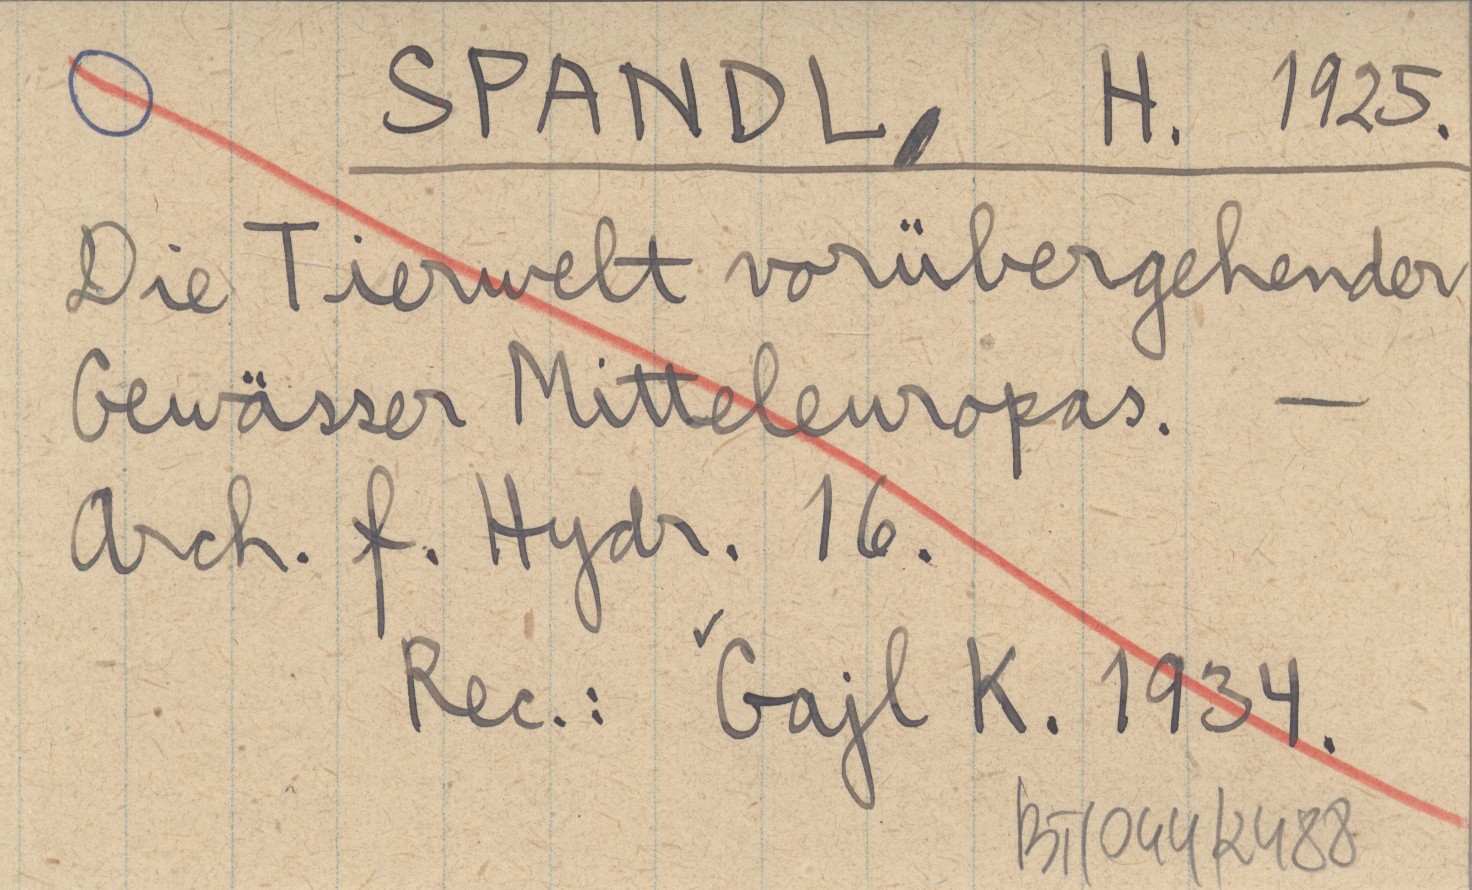 SPANDL, H. 1925.
Die Tierwelt vorübergehender
Gewässer Mitteleuropas. —
Arch. f. Hydr. 16.
Rec.: Gajl K. 1934.
BT/044/2488